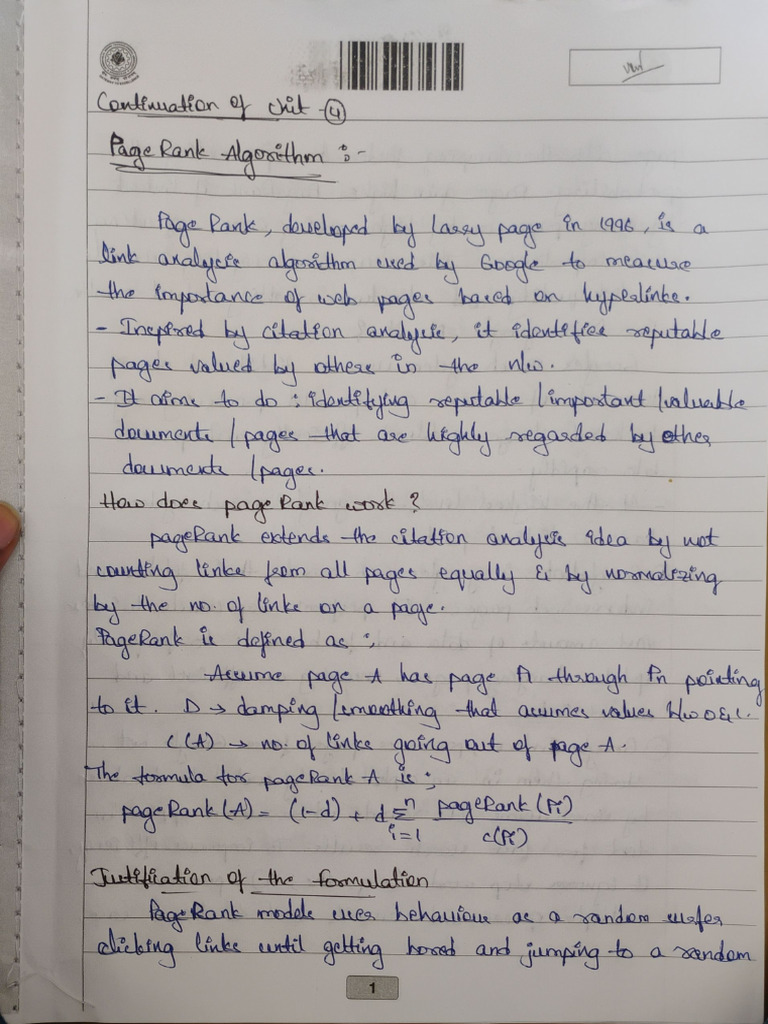 Continuation of Unit - 4
PageRank Algorithm :-
Page Rank, developed by Larry page in 1996, is a
link analysis algorithm used by Google to measure
the importance of web pages based on hyperlinks.
- Inspired by citation analysis, it identifies reputable
pages valued by others in the n/w.
- It aims to do : identifying reputable /important /valuable
documents / pages that are highly regarded by other
documents /pages.
How does pageRank work ?
pageRank extends the citation analysis idea by not
counting links from all pages equally & by normalizing
by the no. of links on a page.
PageRank is defined as :,
Assume page A has page P1 through Pn pointing
to it. D → damping /smoothing that assumes values b/w 0 & 1.
C(A) → no. of links going out of page A.
The formula for pageRank A is :,
pageRank(A) = (1-d) + d Σ^n_{i=1} pageRank(Pi) / c(Pi)
Justification of the formulation
PageRank models user behaviour as a random surfer
clicking links until getting bored and jumping to a random
1